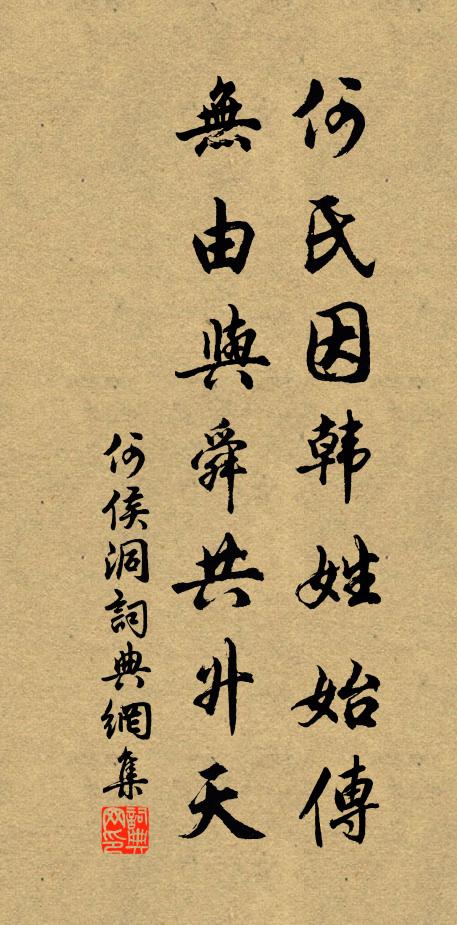 何氏因韩姓始傳
無由與舜共升天
何侯洞詞典網集
詞典网印